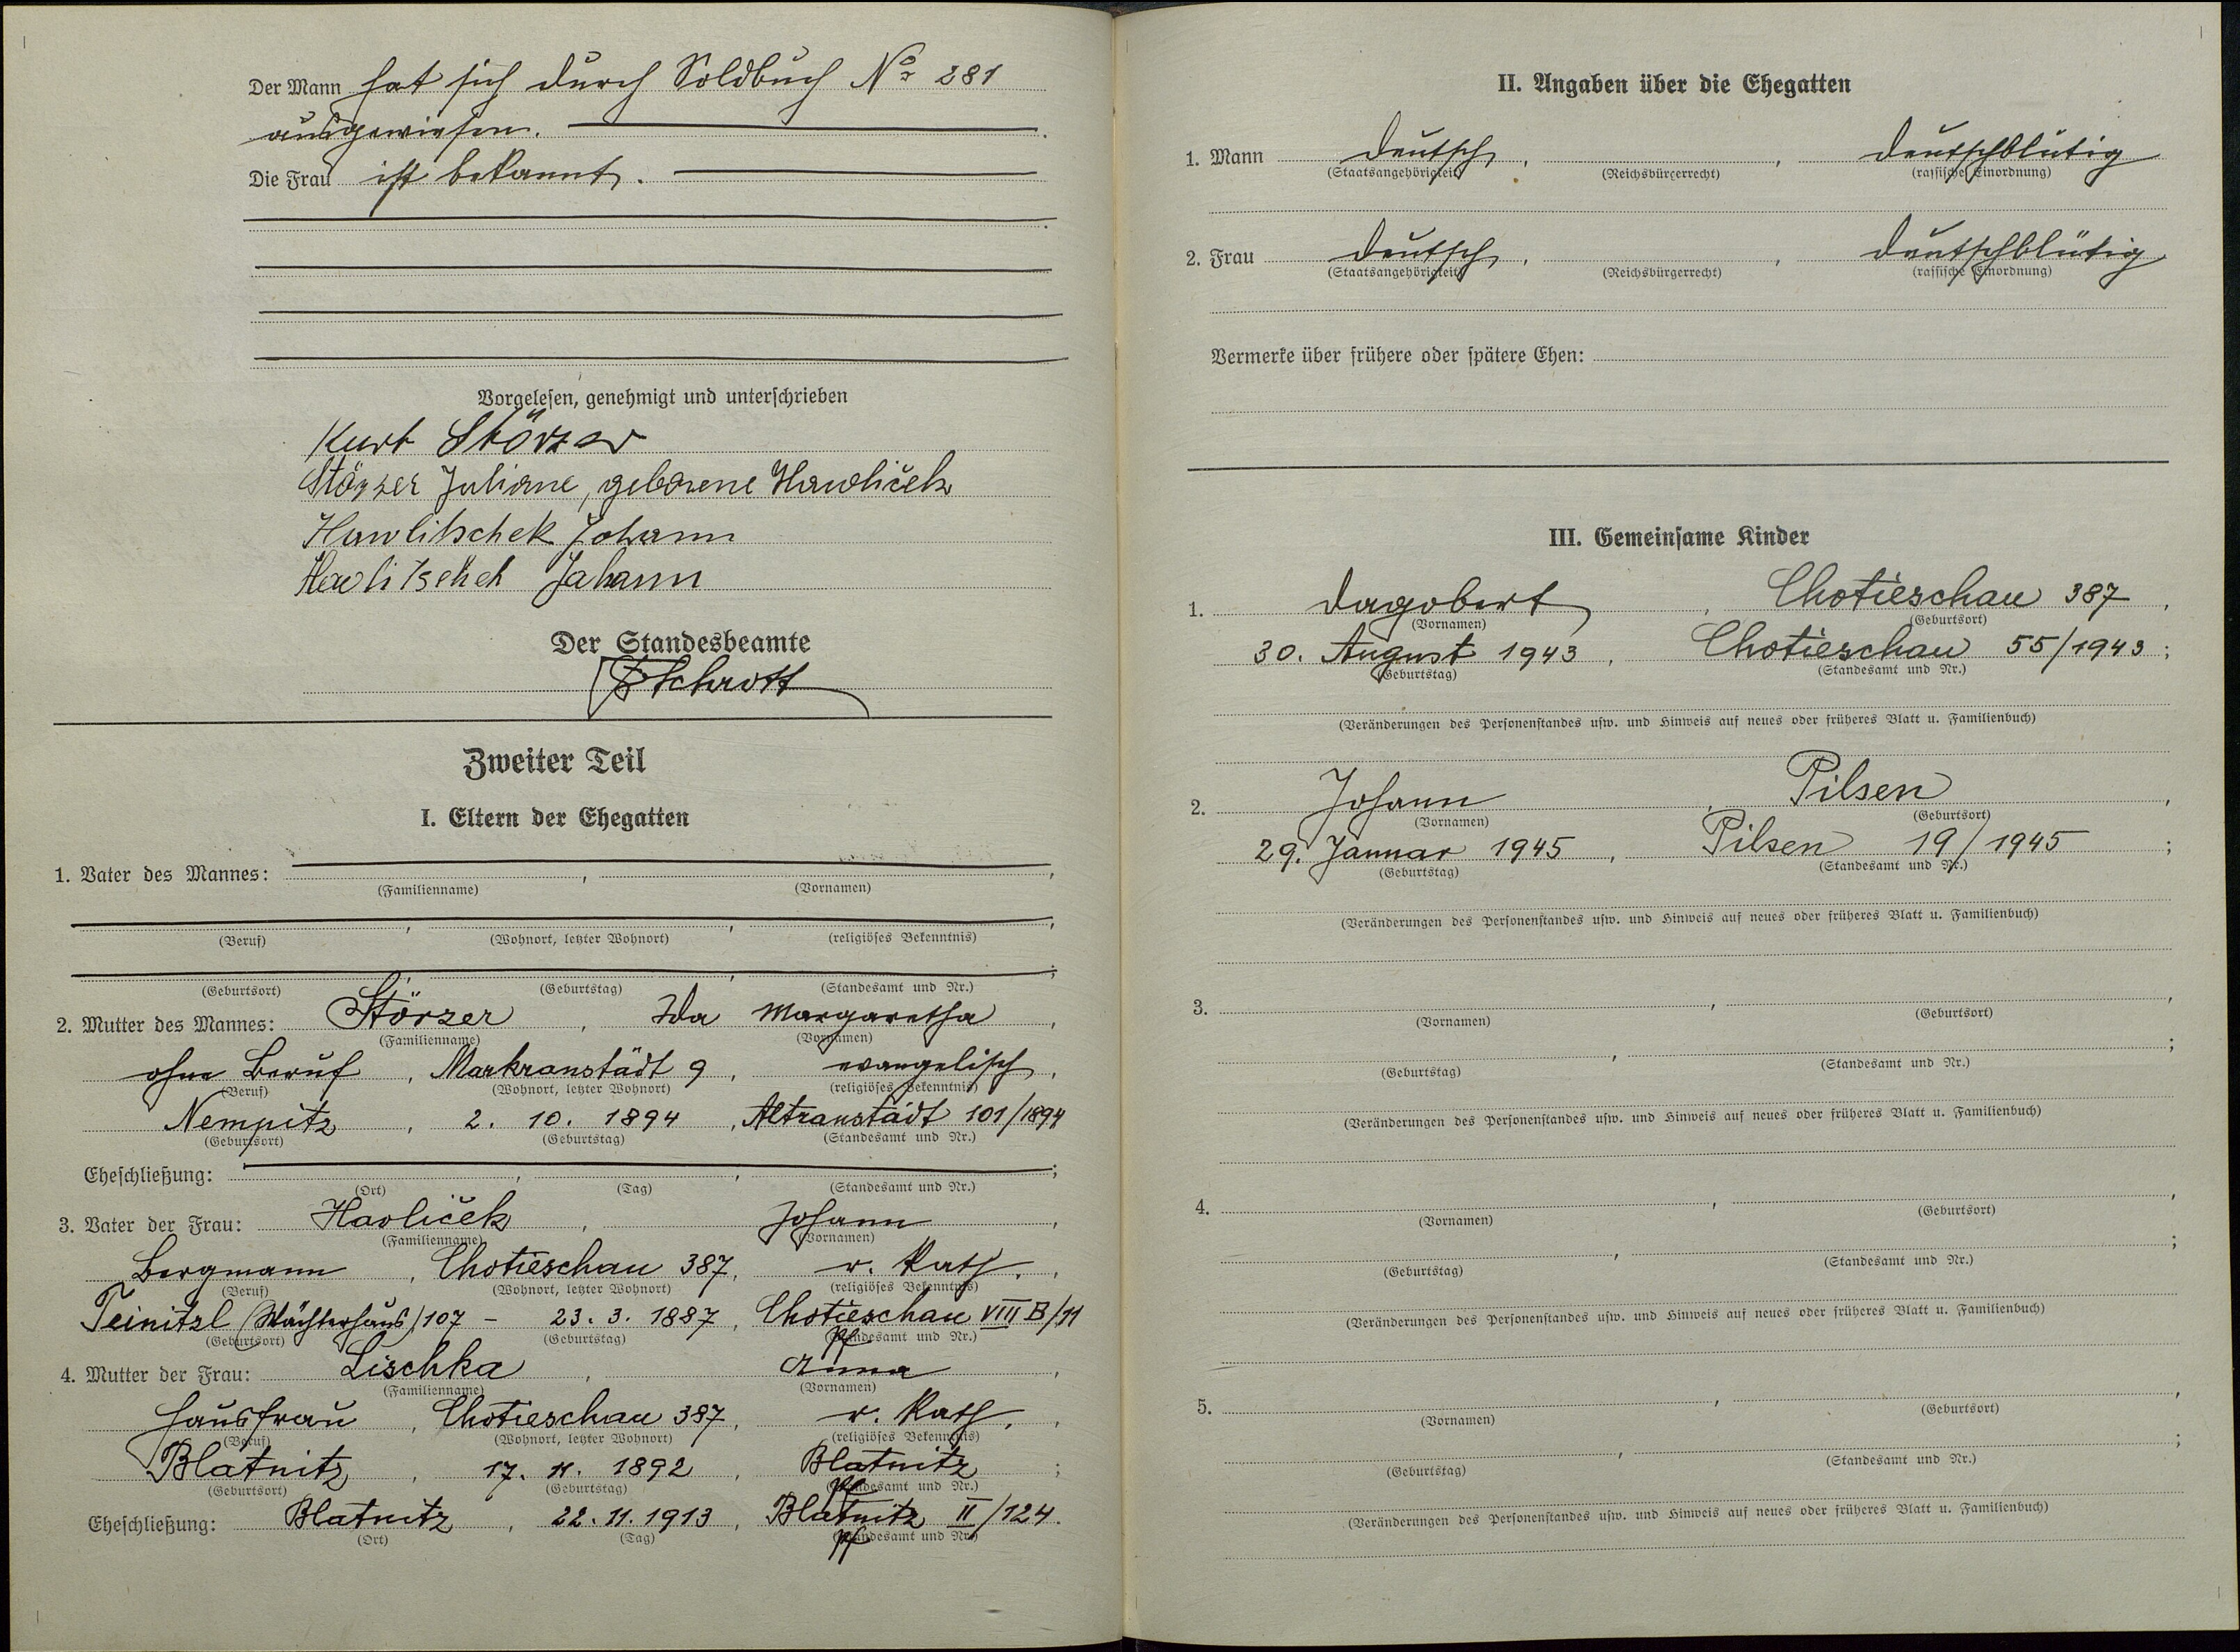 Der Mann hat sich durch Soldbuch No 281
ausgewiesen.
Die Frau ist bekannt.
Vorgelesen, genehmigt und unterschrieben
Kurt Störzer
Störzer Juliane, geborene Hawliček
Hawlitschek Johann
Hawlitschek Johann
Der Standesbeamte
Schrott
Zweiter Teil
I. Eltern der Ehegatten
1. Vater des Mannes:
(Familienname) (Vornamen)
(Beruf) (Wohnort, letzter Wohnort) (religiöses Bekenntnis)
(Geburtsort) (Geburtstag) (Standesamt und Nr.)
2. Mutter des Mannes: Störzer, Ida Margaretha,
(Familienname) (Vornamen)
ohne Beruf, Markranstädt 9, evangelisch,
(Beruf) (Wohnort, letzter Wohnort) (religiöses Bekenntnis)
Nempitz, 2. 10. 1894, Altranstädt 101/1894
(Geburtsort) (Geburtstag) (Standesamt und Nr.)
Eheschließung:
(Ort) (Tag) (Standesamt und Nr.)
3. Vater der Frau: Havliček, Johann,
(Familienname) (Vornamen)
Bergmann, Chotieschau 387, r. kath.,
(Beruf) (Wohnort, letzter Wohnort) (religiöses Bekenntnis)
Teinitzl (Wächterhaus) 107 – 23. 3. 1887, Chotieschau VIII B/11
(Geburtsort) (Geburtstag) Pf (Standesamt und Nr.)
4. Mutter der Frau: Lischka, Anna,
(Familienname) (Vornamen)
Hausfrau, Chotieschau 387, r. kath.,
(Beruf) (Wohnort, letzter Wohnort) (religiöses Bekenntnis)
Blatnitz, 17. 11. 1892, Blatnitz;
(Geburtsort) (Geburtstag) Pf (Standesamt und Nr.)
Eheschließung: Blatnitz, 22. 11. 1913, Blatnitz II/124.
(Ort) (Tag) Pf (Standesamt und Nr.)
II. Angaben über die Ehegatten
1. Mann deutsch, , deutschblütig
(Staatsangehörigkeit) (Reichsbürgerrecht) (rassische Einordnung)
2. Frau deutsch, , deutschblütig
(Staatsangehörigkeit) (Reichsbürgerrecht) (rassische Einordnung)
Vermerke über frühere oder spätere Ehen:
III. Gemeinsame Kinder
1. Dagobert, Chotieschau 387,
(Vornamen) (Geburtsort)
30. August 1943, Chotieschau 55/1943;
(Geburtstag) (Standesamt und Nr.)
(Veränderungen des Personenstandes usw. und Hinweis auf neues oder früheres Blatt u. Familienbuch)
2. Johann, Pilsen,
(Vornamen) (Geburtsort)
29. Jannar 1945, Pilsen 19/1945;
(Geburtstag) (Standesamt und Nr.)
(Veränderungen des Personenstandes usw. und Hinweis auf neues oder früheres Blatt u. Familienbuch)
3.
(Vornamen) (Geburtsort)
(Geburtstag) (Standesamt und Nr.)
(Veränderungen des Personenstandes usw. und Hinweis auf neues oder früheres Blatt u. Familienbuch)
4.
(Vornamen) (Geburtsort)
(Geburtstag) (Standesamt und Nr.)
(Veränderungen des Personenstandes usw. und Hinweis auf neues oder früheres Blatt u. Familienbuch)
5.
(Vornamen) (Geburtsort)
(Geburtstag) (Standesamt und Nr.)
(Veränderungen des Personenstandes usw. und Hinweis auf neues oder früheres Blatt u. Familienbuch)